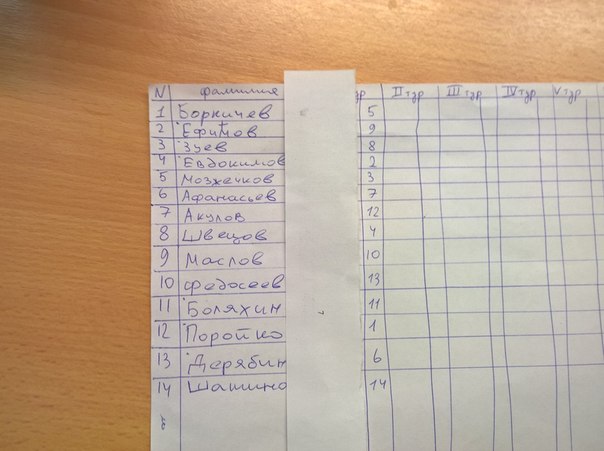 N фамилие ур II тур III тур IV тур V тур
1 Боркичев 5
2 Ефимов 9
3 Зуев 8
4 Евдокимов 2
5 Мозжечков 3
6 Афанасьев 7
7 Акулов 12
8 Швецов 4
9 Маслов 10
10 Федосеев 13
11 Боляхин 11
12 Поройко 1
13 Дерябин 6
14 Шашино 14